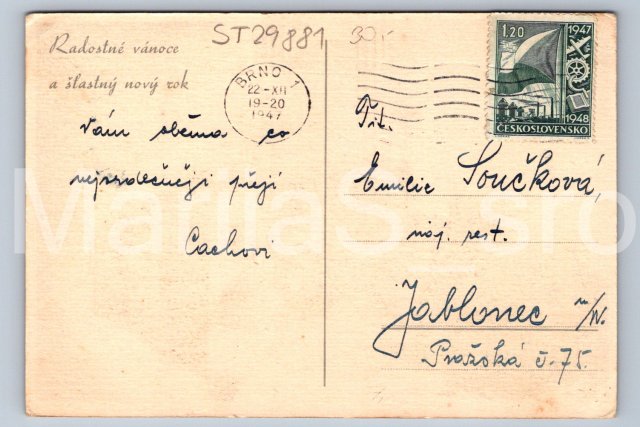 Radostné vánoce
a šťastný nový rok
ST29881
30,-
BRNO 1
22-XII
19-20
1947
1.20
1947
1948
ČESKOSLOVENSKO
Vám oběma co
nejsrdečněji přejí
Cachovi
Tit.
Emilie Součková,
náj. rest.
Jablonec n/N.
Pražská č. 75.